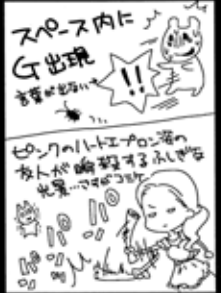 スペース内に
G出現
言葉が出ない→
!!
ピンクのハートエプロン姿の
友人が瞬殺するふしぎな
光景…さすがコミケ
パン
パン
パン